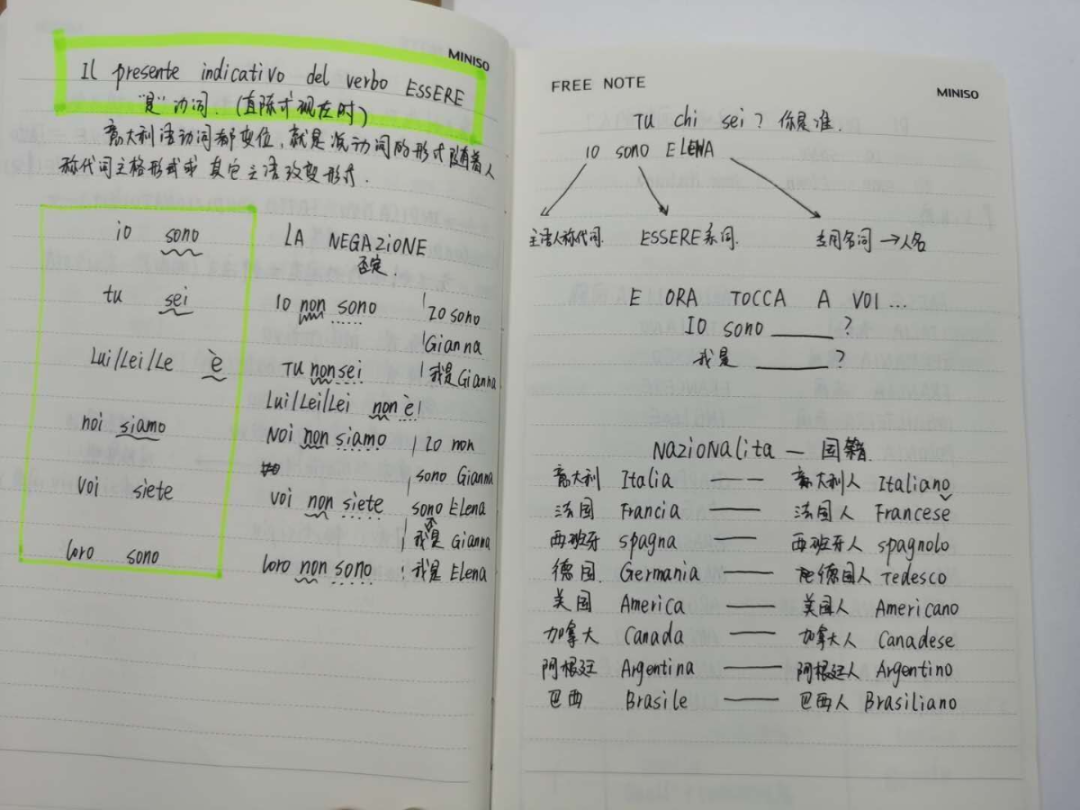 MINISO
Il presente indicativo del verbo ESSERE
"是"动词.(直陈式现在时)
意大利语动词都变位,就是说动词的形式随着人
称代词主格形式或其它主语改变形式.
io sono
tu sei
Lui/Lei/Le è
noi siamo
voi siete
loro sono
LA NEGAZIONE
否定!
Io non sono
Tu non sei
Lui/Lei/Lei non è!
Noi non siamo
voi non siete
loro non sono
Io sono
Gianna
我是Gianna
Io non
sono Gianna
sono Elena
我不是Gianna
我是Elena
FREE NOTE
MINISO
Tu chi sei? 你是谁.
Io sono ELENA
主语人称代词. ESSERE系词. 专用名词→人名
E ORA TOCCA A VOI...
IO sono ______?
我是 ______?
NazioNalita — 国籍
意大利 Italia —— 意大利人 Italiano
法国 Francia —— 法国人 Francese
西班牙 spagna —— 西班牙人 spagnolo
德国. Germania —— 德国人 Tedesco
美国 America —— 美国人 Americano
加拿大 Canada —— 加拿大人 Canadese
阿根廷 Argentina —— 阿根廷人 Argentino
巴西 Brasile —— 巴西人 Brasiliano